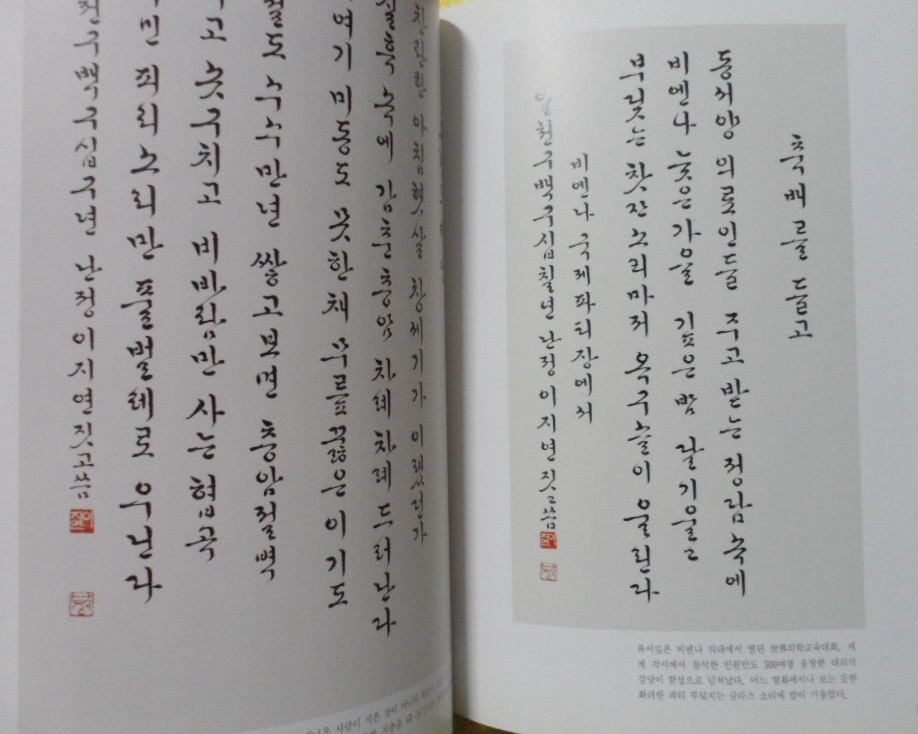 찬란한 아침햇살 창세기가 이랬던가
속에 감춘 층암 차례 차례 드러난다
여기 미동도 못한 채 무릎꿇은 이 기도
수수만년 쌓고보면 층암절벽
고 솟구치고 비바람만 사는 협곡
피리소리만 풀벌레로 우닌다
천구백구십구년 난정 이지연 짓고 씀
축배를 들고
동서양 의료인들 주고 받는 정담 속에
비엔나 늦은 가을 깊은 밤 달 기울고
부딪는 찻잔소리마저 옥구슬이 울린다
비엔나 국제파티장에서
일천구백구십칠년 난정 이지연 짓고 씀
유서깊은 비엔나 의대에서 열린 世界의학교육대회. 세
계 각지에서 참석한 인원만도 500여명 웅장한 대리석
강당이 함성으로 넘쳐났다. 어느 영화에서나 보는 듯한
화려한 파티 부딪치는 글라스 소리에 밤이 기울었다.